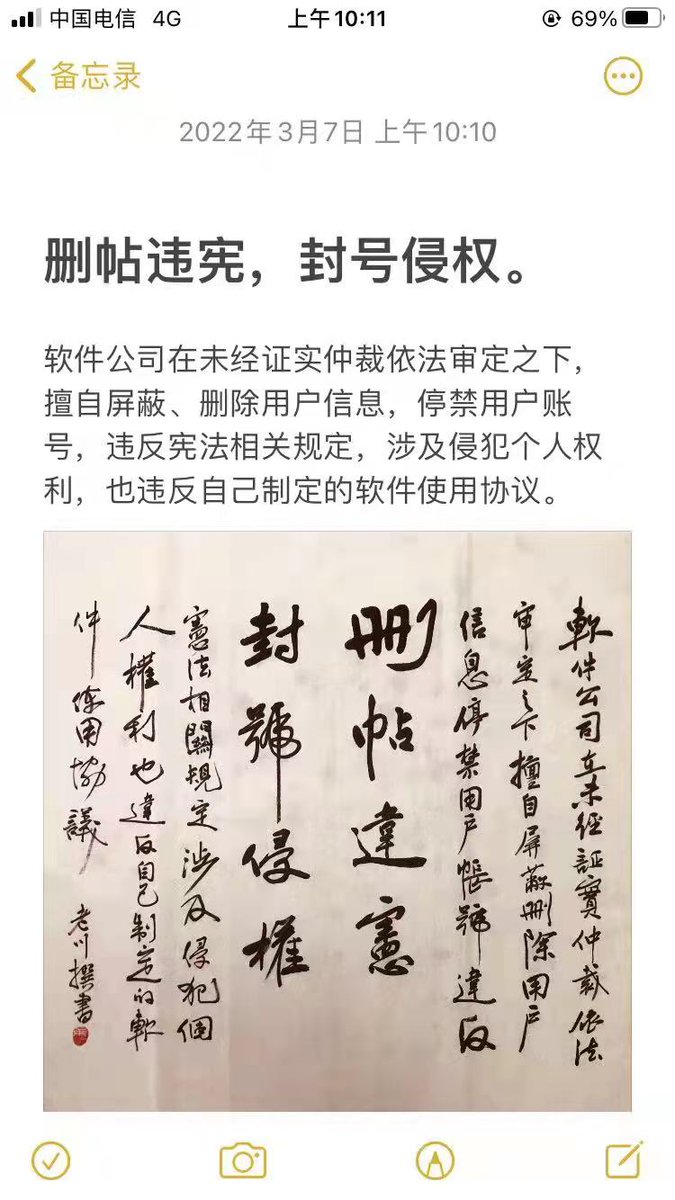 中国电信 4G 上午10:11 69%
备忘录
2022年3月7日 上午10:10
删帖违宪，封号侵权。
软件公司在未经证实仲裁依法审定之下，
擅自屏蔽、删除用户信息，停禁用户账
号，违反宪法相关规定，涉及侵犯个人权
利，也违反自己制定的软件使用协议。
軟件公司在未經証實仲裁依法
審定之下擅自屏蔽刪除用户
信息停禁用户帳號違反
刪帖違憲
封號侵權
憲法相關規定涉及侵犯個
人權利也違反自己制定的軟
件使用協議
老川撰書